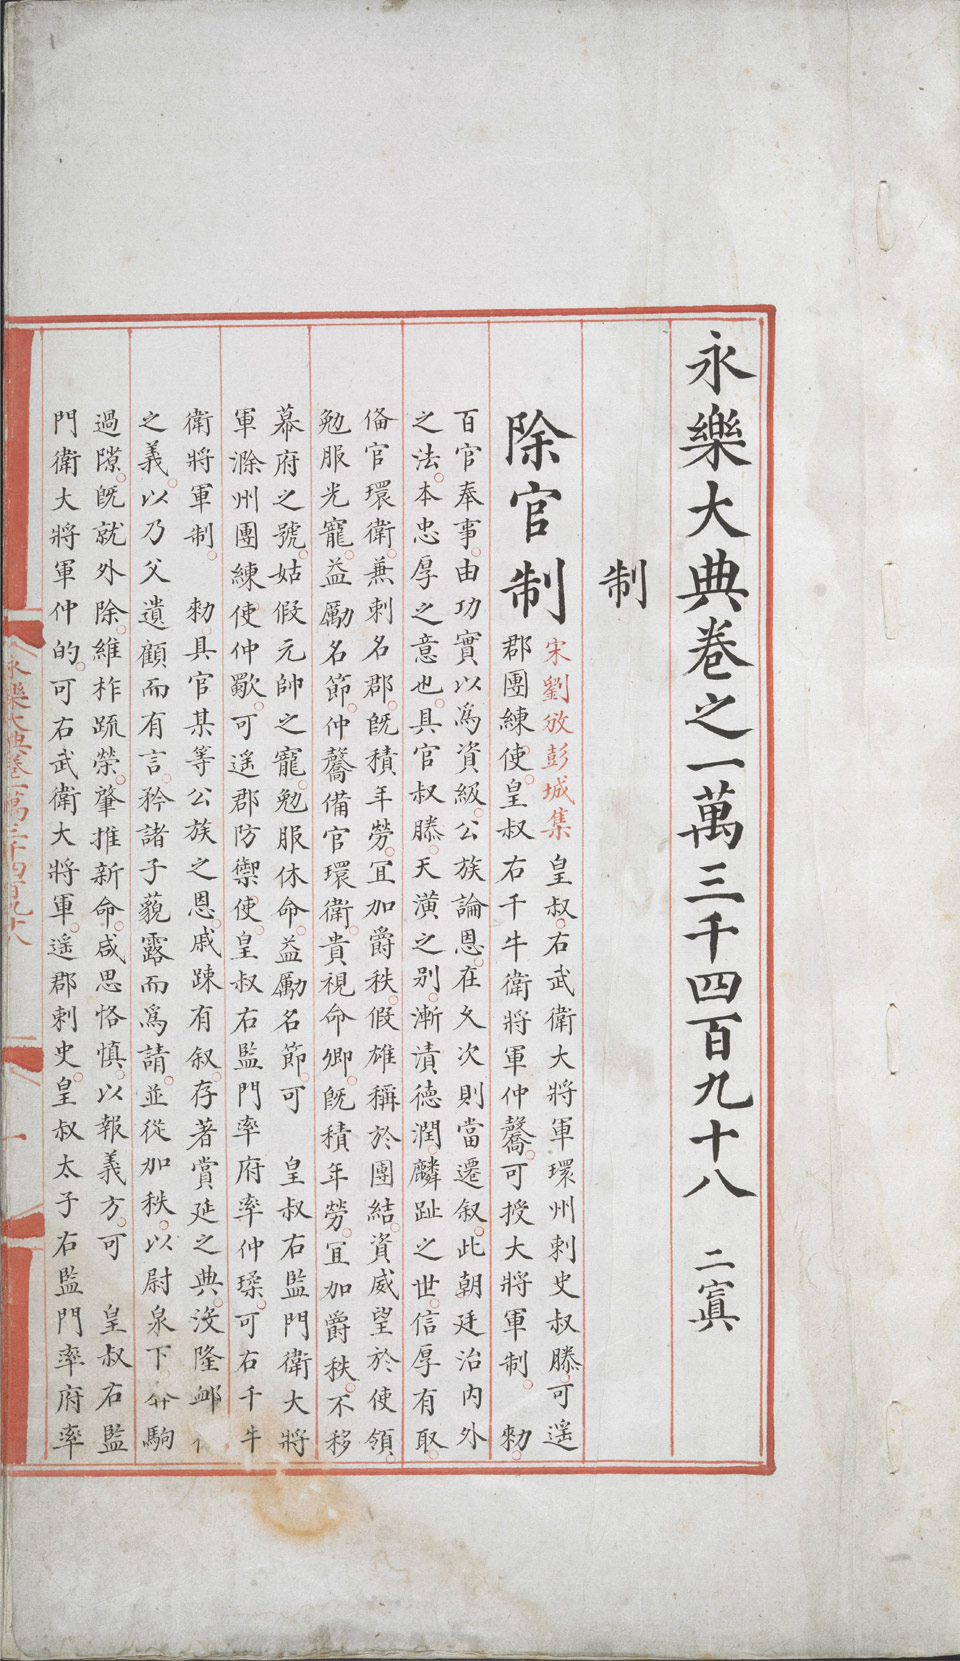 永樂大典卷之一萬三千四百九十八 二寘
制
除官制
宋劉攽彭城集 皇叔右武衛大將軍環州刺史叔滕可遥
郡團練使皇叔右千牛衛將軍仲䮪可授大將軍制 勑
百官奉事由功實以爲資級公族論恩在久次則當遷叙此朝廷治内外
之法本忠厚之意也具官叔滕天潢之别漸漬德潤麟趾之世信厚有取
俻官環衛兼刺名郡既積年勞冝加爵秩假雄稱於團結資威望於使領
勉服光寵益勵名節仲䮪備官環衛貴視命卿既積年勞冝加爵秩不移
幕府之號姑假元帥之寵勉服休命益勵名節可 皇叔右監門衛大將
軍滁州團練使仲歜可遥郡防禦使皇叔右監門率府率仲㻧可右千牛
衛將軍制 勑具官某等公族之恩戚踈有叙存著賞延之典没隆卹
之義以乃父遺顧而有言矜諸子藐露而爲請並從加秩以尉泉下 駒
過隙既就外除維柞疏榮肇推新命咸思恪慎以報義方可 皇叔右監
門衛大將軍仲的可右武衛大將軍遥郡刺史皇叔太子右監門率府率
永樂大典卷一萬三千四百九十八
一